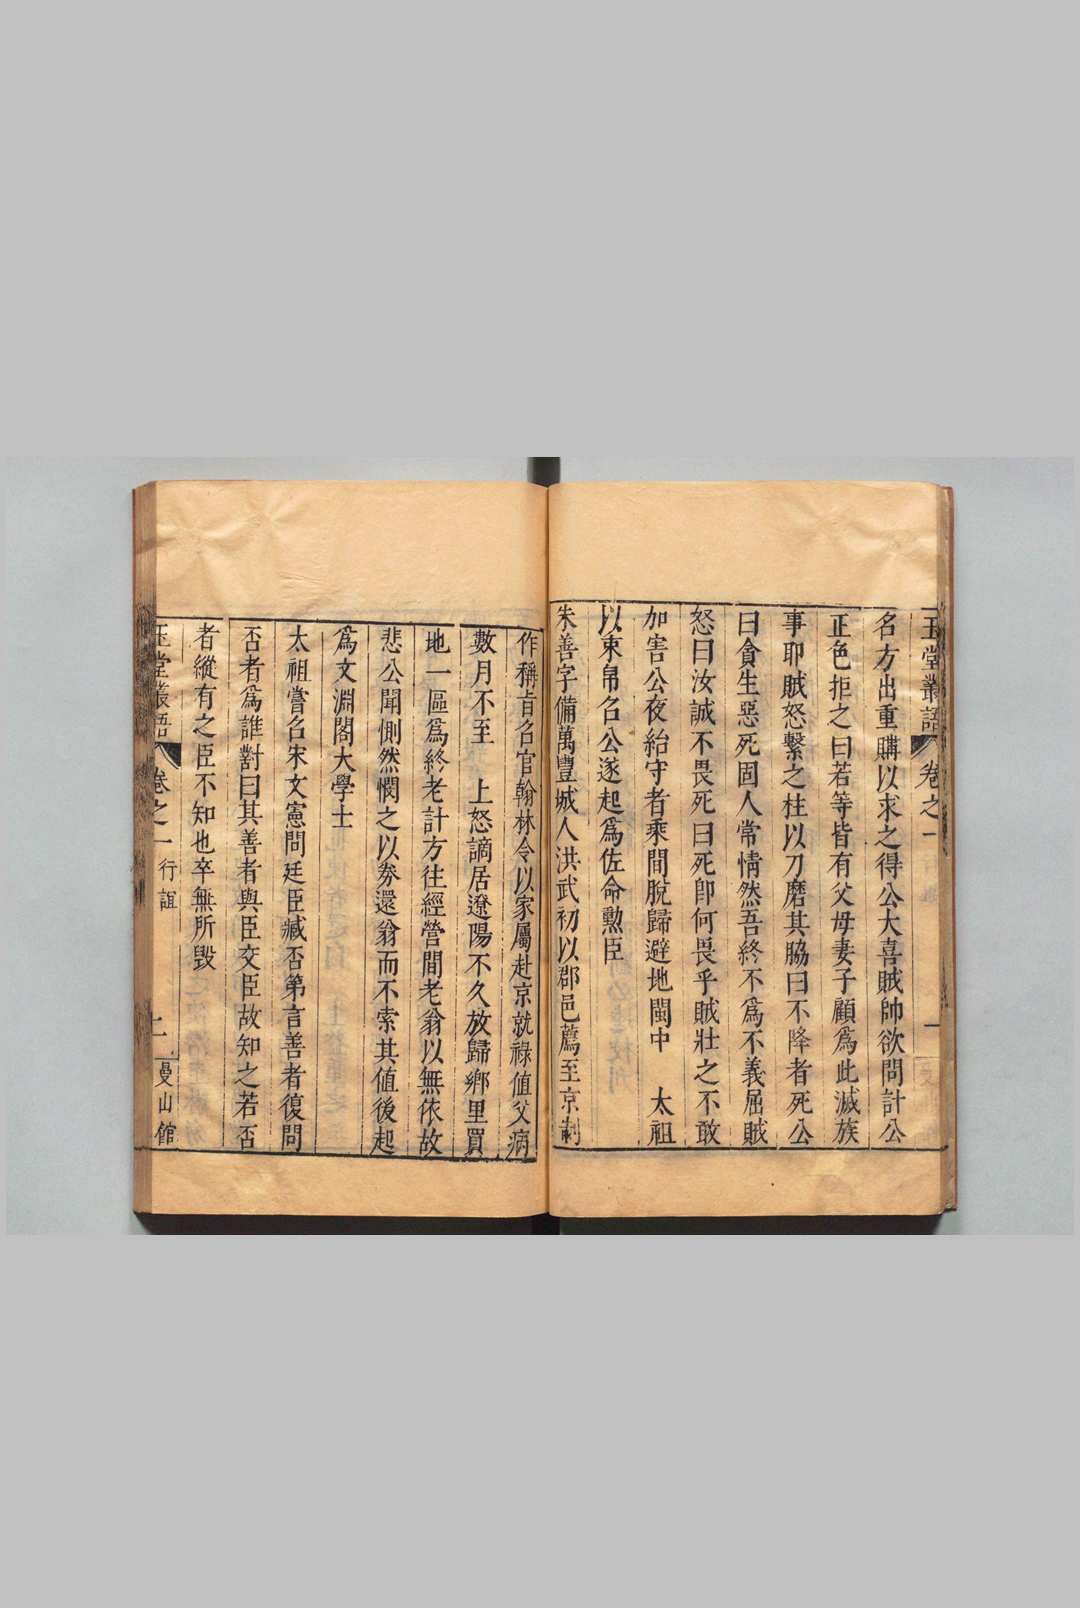 玉堂叢語 卷之一 一
名方出重購以求之得公大喜賊帥欲問計公
正色拒之曰若等皆有父母妻子顧爲此滅族
事耶賊怒繫之柱以刀磨其脇曰不降者死公
曰貪生惡死固人常情然吾終不爲不義屈賊
怒曰汝誠不畏死曰死卽何畏乎賊壯之不敢
加害公夜紿守者乘間脫歸避地閩中 太祖
以束帛召公遂起爲佐命勲臣
朱善字備萬豐城人洪武初以郡邑薦至京制
作稱旨名官翰林令以家屬赴京就祿值父病
數月不至 上怒謫居遼陽不久放歸鄉里買
地一區爲終老計方往經營間老翁以無依故
悲公聞惻然憫之以券還翁而不索其值後起
爲文淵閣大學士
太祖嘗召宋文憲問廷臣臧否第言善者復問
否者爲誰對曰其善者與臣交臣故知之若否
者縱有之臣不知也卒無所毀
玉堂叢語 卷之一 行誼 二 曼山館